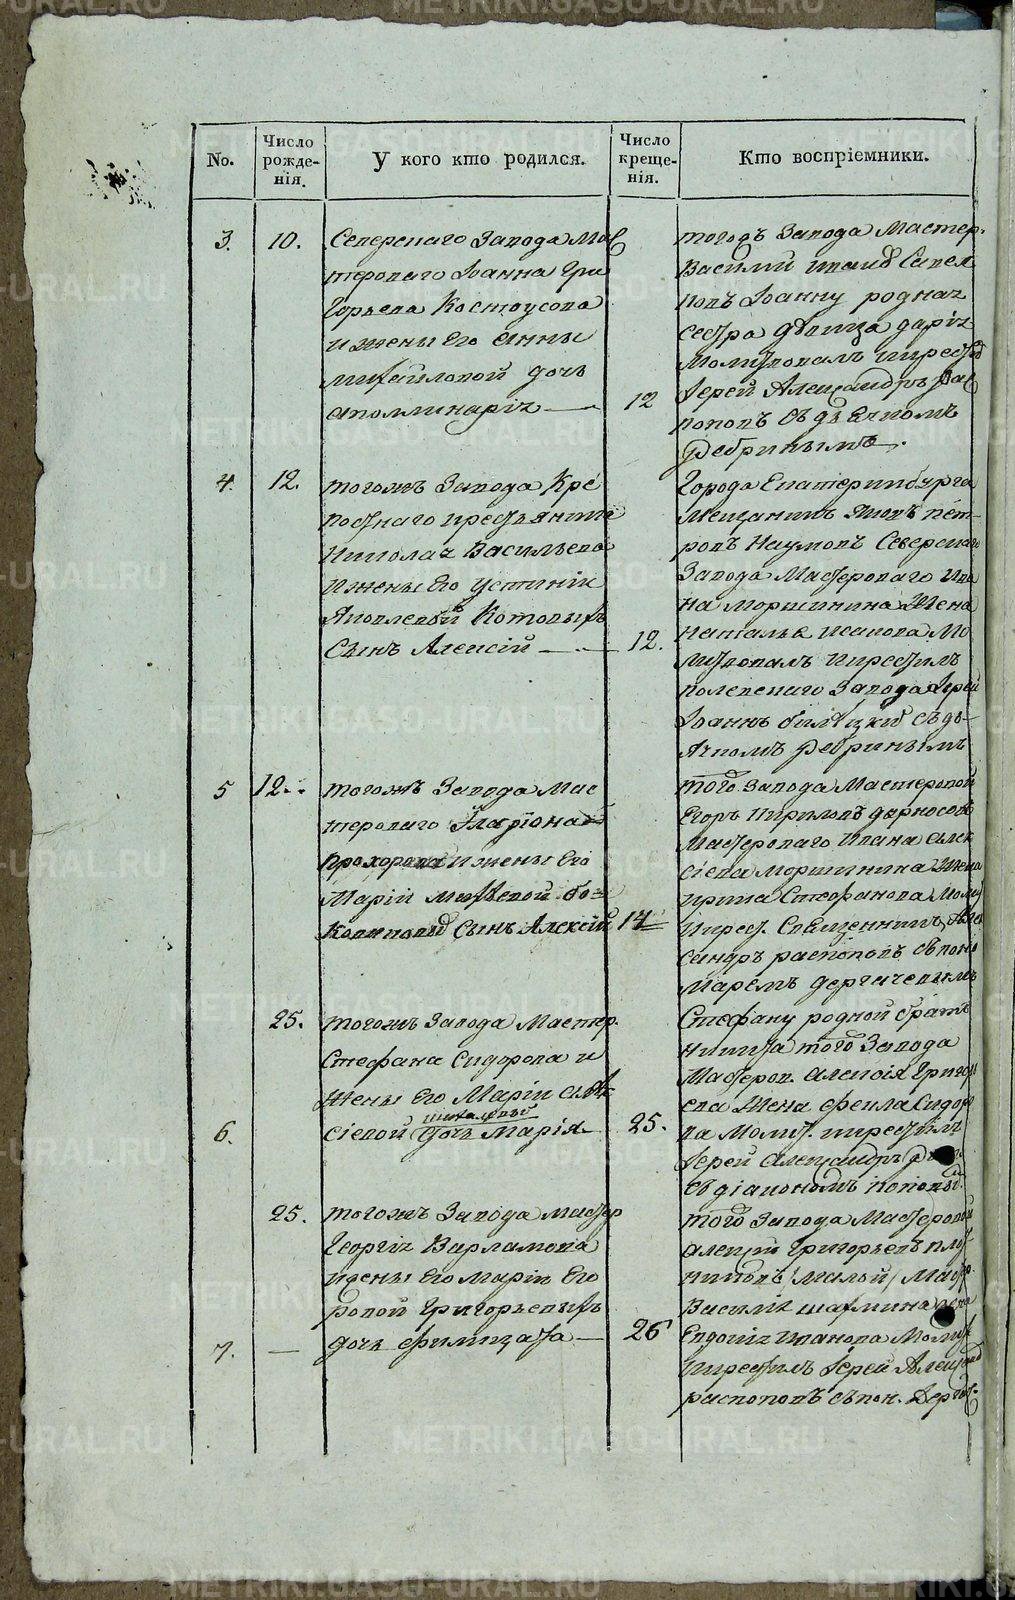 No.
Число рожде-нія.
У кого кто родился.
Число креще-нія.
Кто воспріемники.
3.
10.
Северскаго Завода Мас
тероваго Іоанна Гри
горьева Костоусова
и жены Его Анны
Михайловой дочь
Аполлинарія
12
тогожъ Завода Мастер.
Василий
Іоанну родная
сестра девица дарія
Молитвовалъ и крест
Іерей Александръ Рас
поповъ съ дьячкомъ
Ребринымъ.
4.
12.
тогожъ Завода Кре
постнаго крестьянина
Николая Васильева
и жены Его Устиніи
Яковлевой Котовыхъ
Сынъ Алексій
12.
Города Екатеринбурга
Мещанинъ Яковъ Пет
ровъ Наумовъ Северскаго
Завода Мастероваго Ива
на Моршинина Жена
Наталья Исакова Мо
литвовалъ и крестилъ
полевскаго Завода Іерей
Іоаннъ съ дь
ячкомъ Ребринымъ
5
12.
тогожъ Завода Мас
тероваго Иларіона
Прохорова и жены Его
Маріи бо
Сынъ Алексій
14
того Завода Мастеровой
Егоръ Кириловъ
Мастероваго Ивана Алек
сіева Моршинина Жена
Ирина Стефанова Молит
и крест. Священникъ Алек
сандръ распоповъ съ поно
маремъ дергачевымъ
6.
25.
тогожъ Завода Мастер.
Стефана Сидорова и
жены Его Маріи Алек
сіевой дочь Марія
25.
Стефану родной братъ
Никита того Завода
Мастеров. Алексія Григорь
ева Жена Фекла Сидоро
ва Молит. и крестилъ
Іерей Александръ
съ діакономъ поповым
7.
25.
тогожъ Завода Мастер
Георгія Варламова
и жены Его Маріи Его
ровой Григорьевыхъ
дочь Филицата
26
того Завода Мастеровой
Алексій Григорьевъ Плот
никовъ Мастеро.
Василія жена
Евдокія Иванова Молит
и крестилъ Іерей Александ
распоповъ съ пон. Дергач.
METRIKI.GASO-URAL.RU